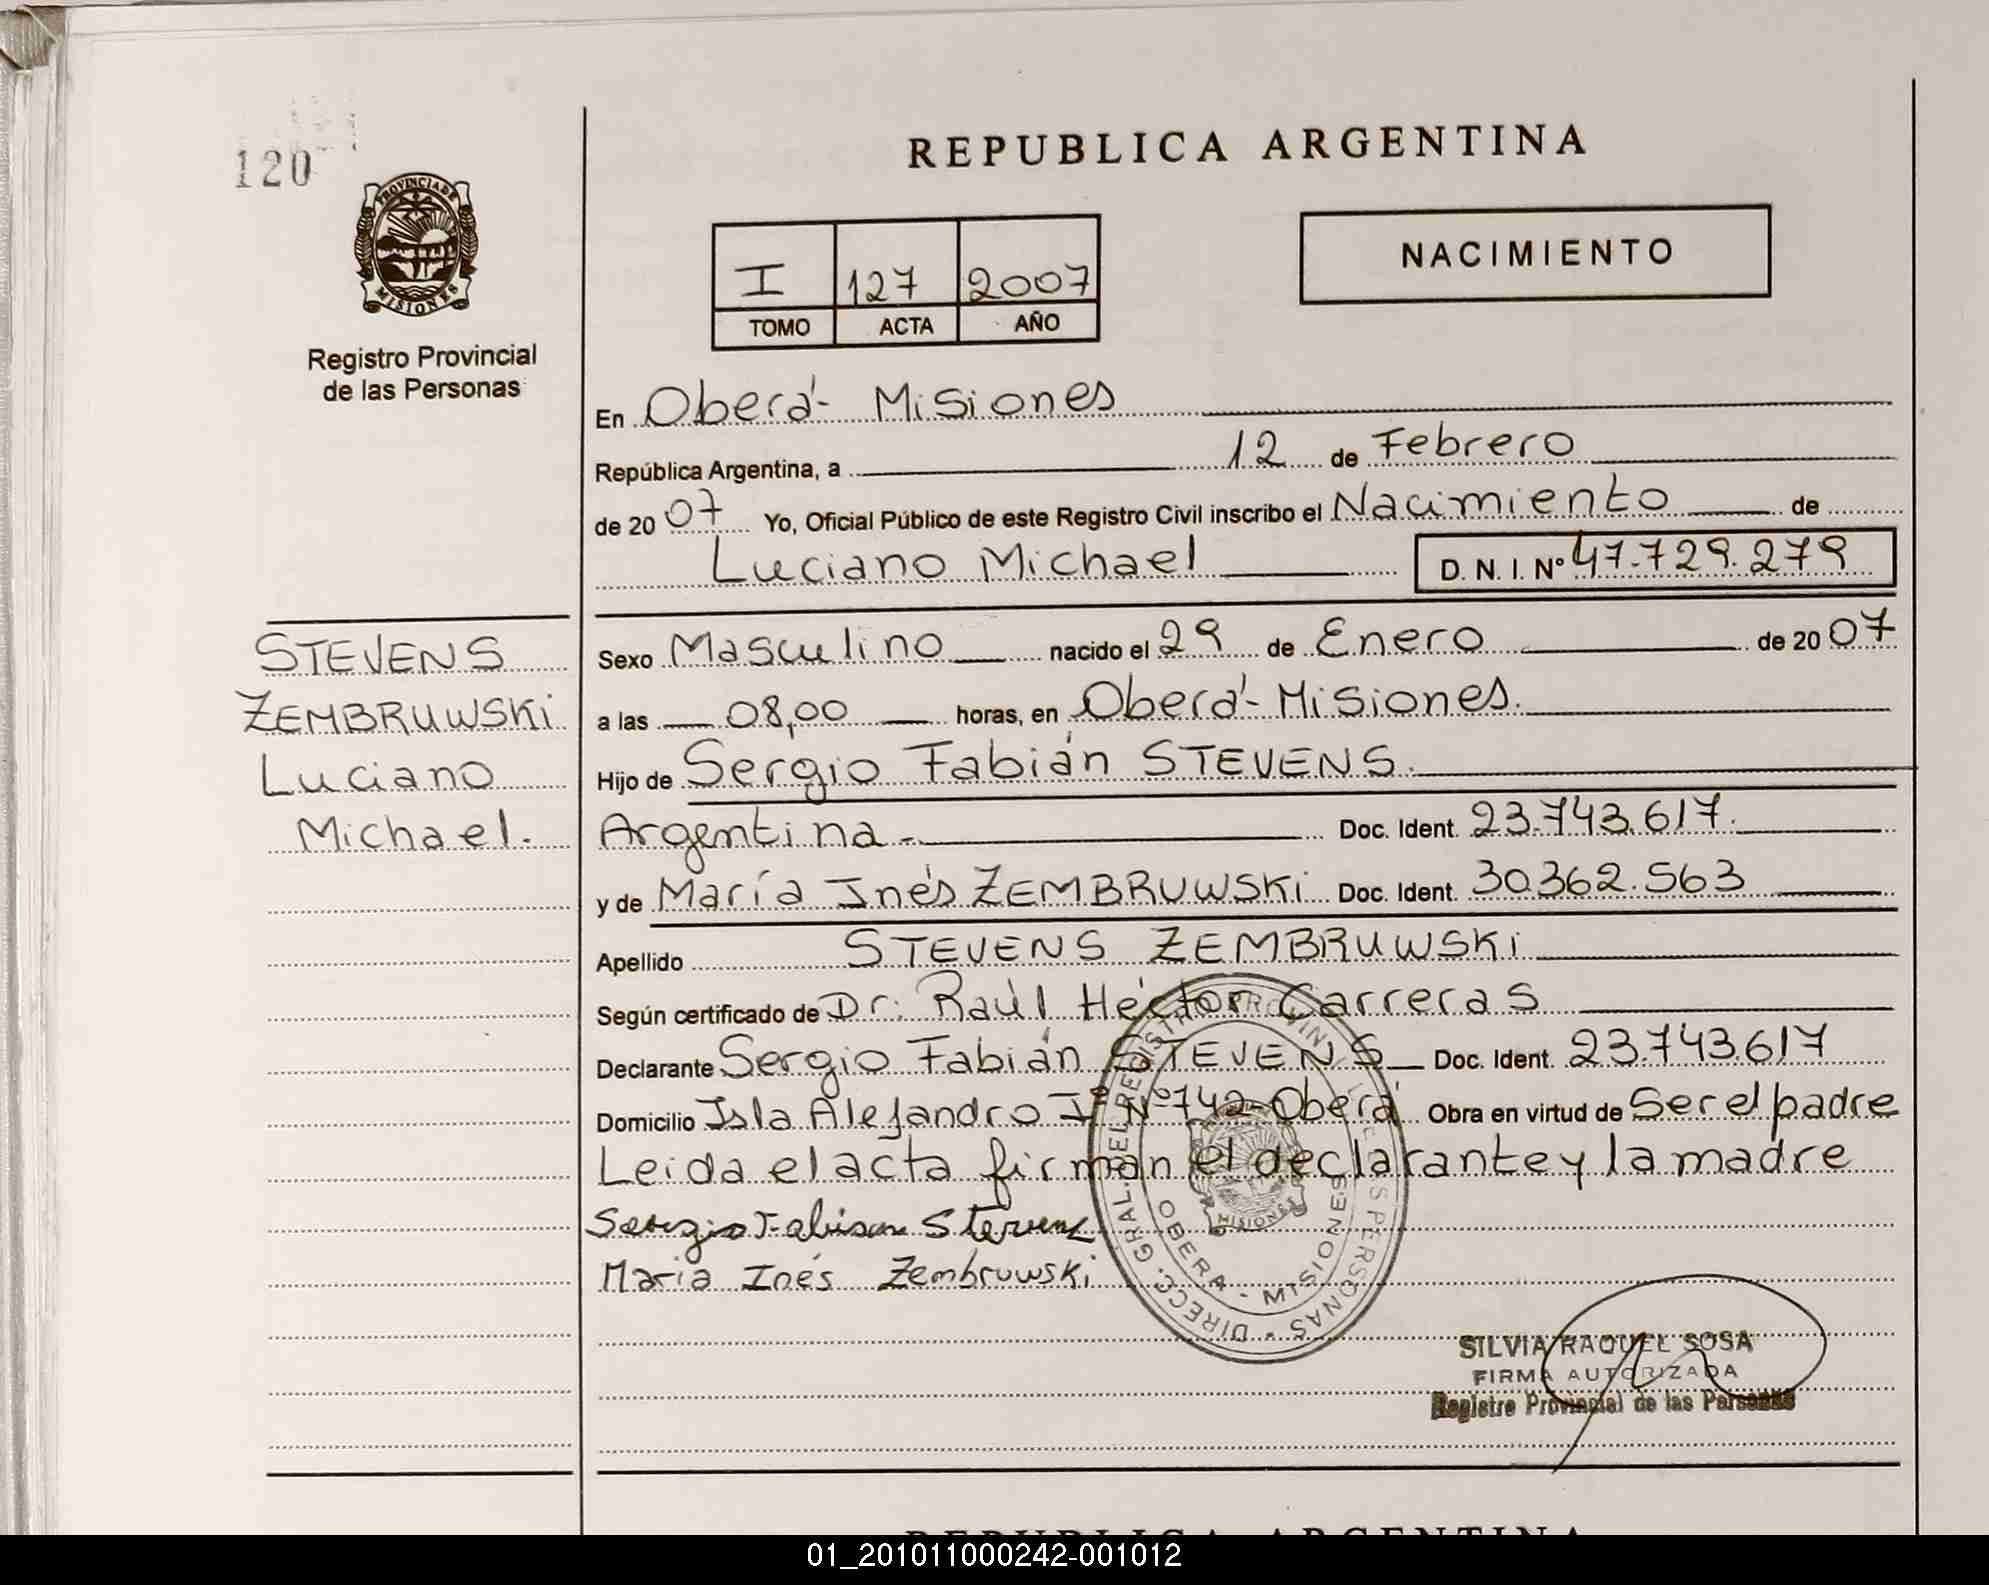 120
PROVINCIA DE
MISIONES
Registro Provincial
de las Personas
REPUBLICA ARGENTINA
I 127 2007
TOMO ACTA AÑO
NACIMIENTO
En Oberá - Misiones
República Argentina, a 12 de Febrero
de 2007 Yo, Oficial Público de este Registro Civil inscribo el Nacimiento de
Luciano Michael D. N. I. Nº 47.729.279
STEVENS
ZEMBRUWSKi
Luciano
Michael.
Sexo Masculino nacido el 29 de Enero de 2007
a las 08,00 horas, en Oberá - Misiones.
Hijo de Sergio Fabián STEVENS.
Argentina.- Doc. Ident. 23.743.617.
y de María Inés ZEMBRUWSKi Doc. Ident. 30.362.563
Apellido STEVENS ZEMBRUWSKi
Según certificado de Dr. Raúl Héctor Carreras
Declarante Sergio Fabián STEVENS Doc. Ident. 23.743.617
Domicilio Isla Alejandro Iº Nº 742 - Oberá Obra en virtud de Ser el padre
Leida el acta firman el declarante y la madre
Sergio Fabian Stevens
Maria Inés Zembruwski
DIRECC. GRAL. DEL REGISTRO PROVINCIAL DE LAS PERSONAS
OBERA - MISIONES
MISIONES
SILVIA RAQUEL SOSA
FIRMA AUTORIZADA
Registro Provincial de las Personas
REPUBLICA ARGENTINA
01_201011000242-001012